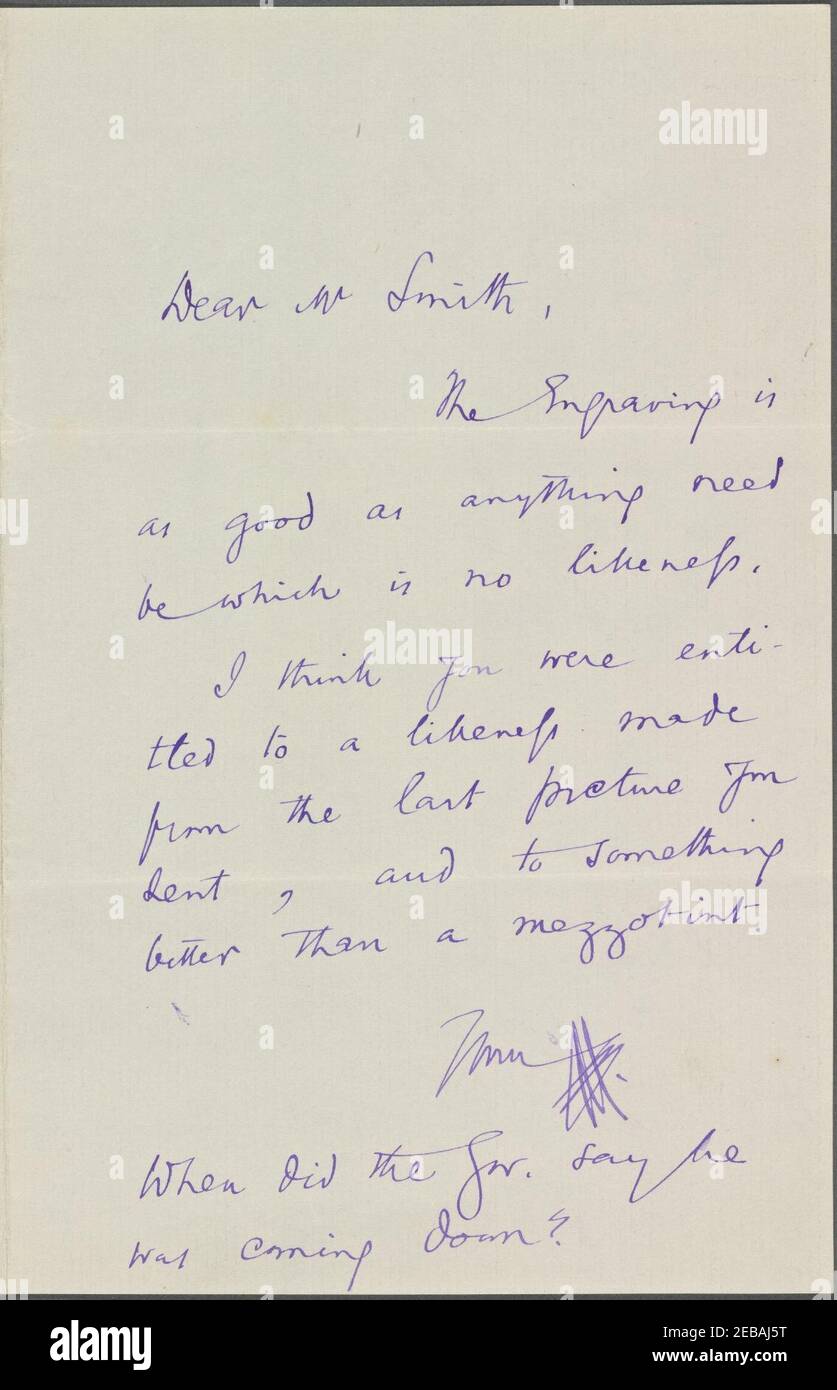 Dear Mr Smith,
The Engraving is
as good as anything need
be which is no likeness.
I think you were enti-
tled to a likeness made
from the last picture you
sent, and to something
better than a mezzotint
Yours
When did the Gov. say he
was coming down?
alamy
alamy
alamy
alamy
Image ID: 2EBAJ5T
www.alamy.com